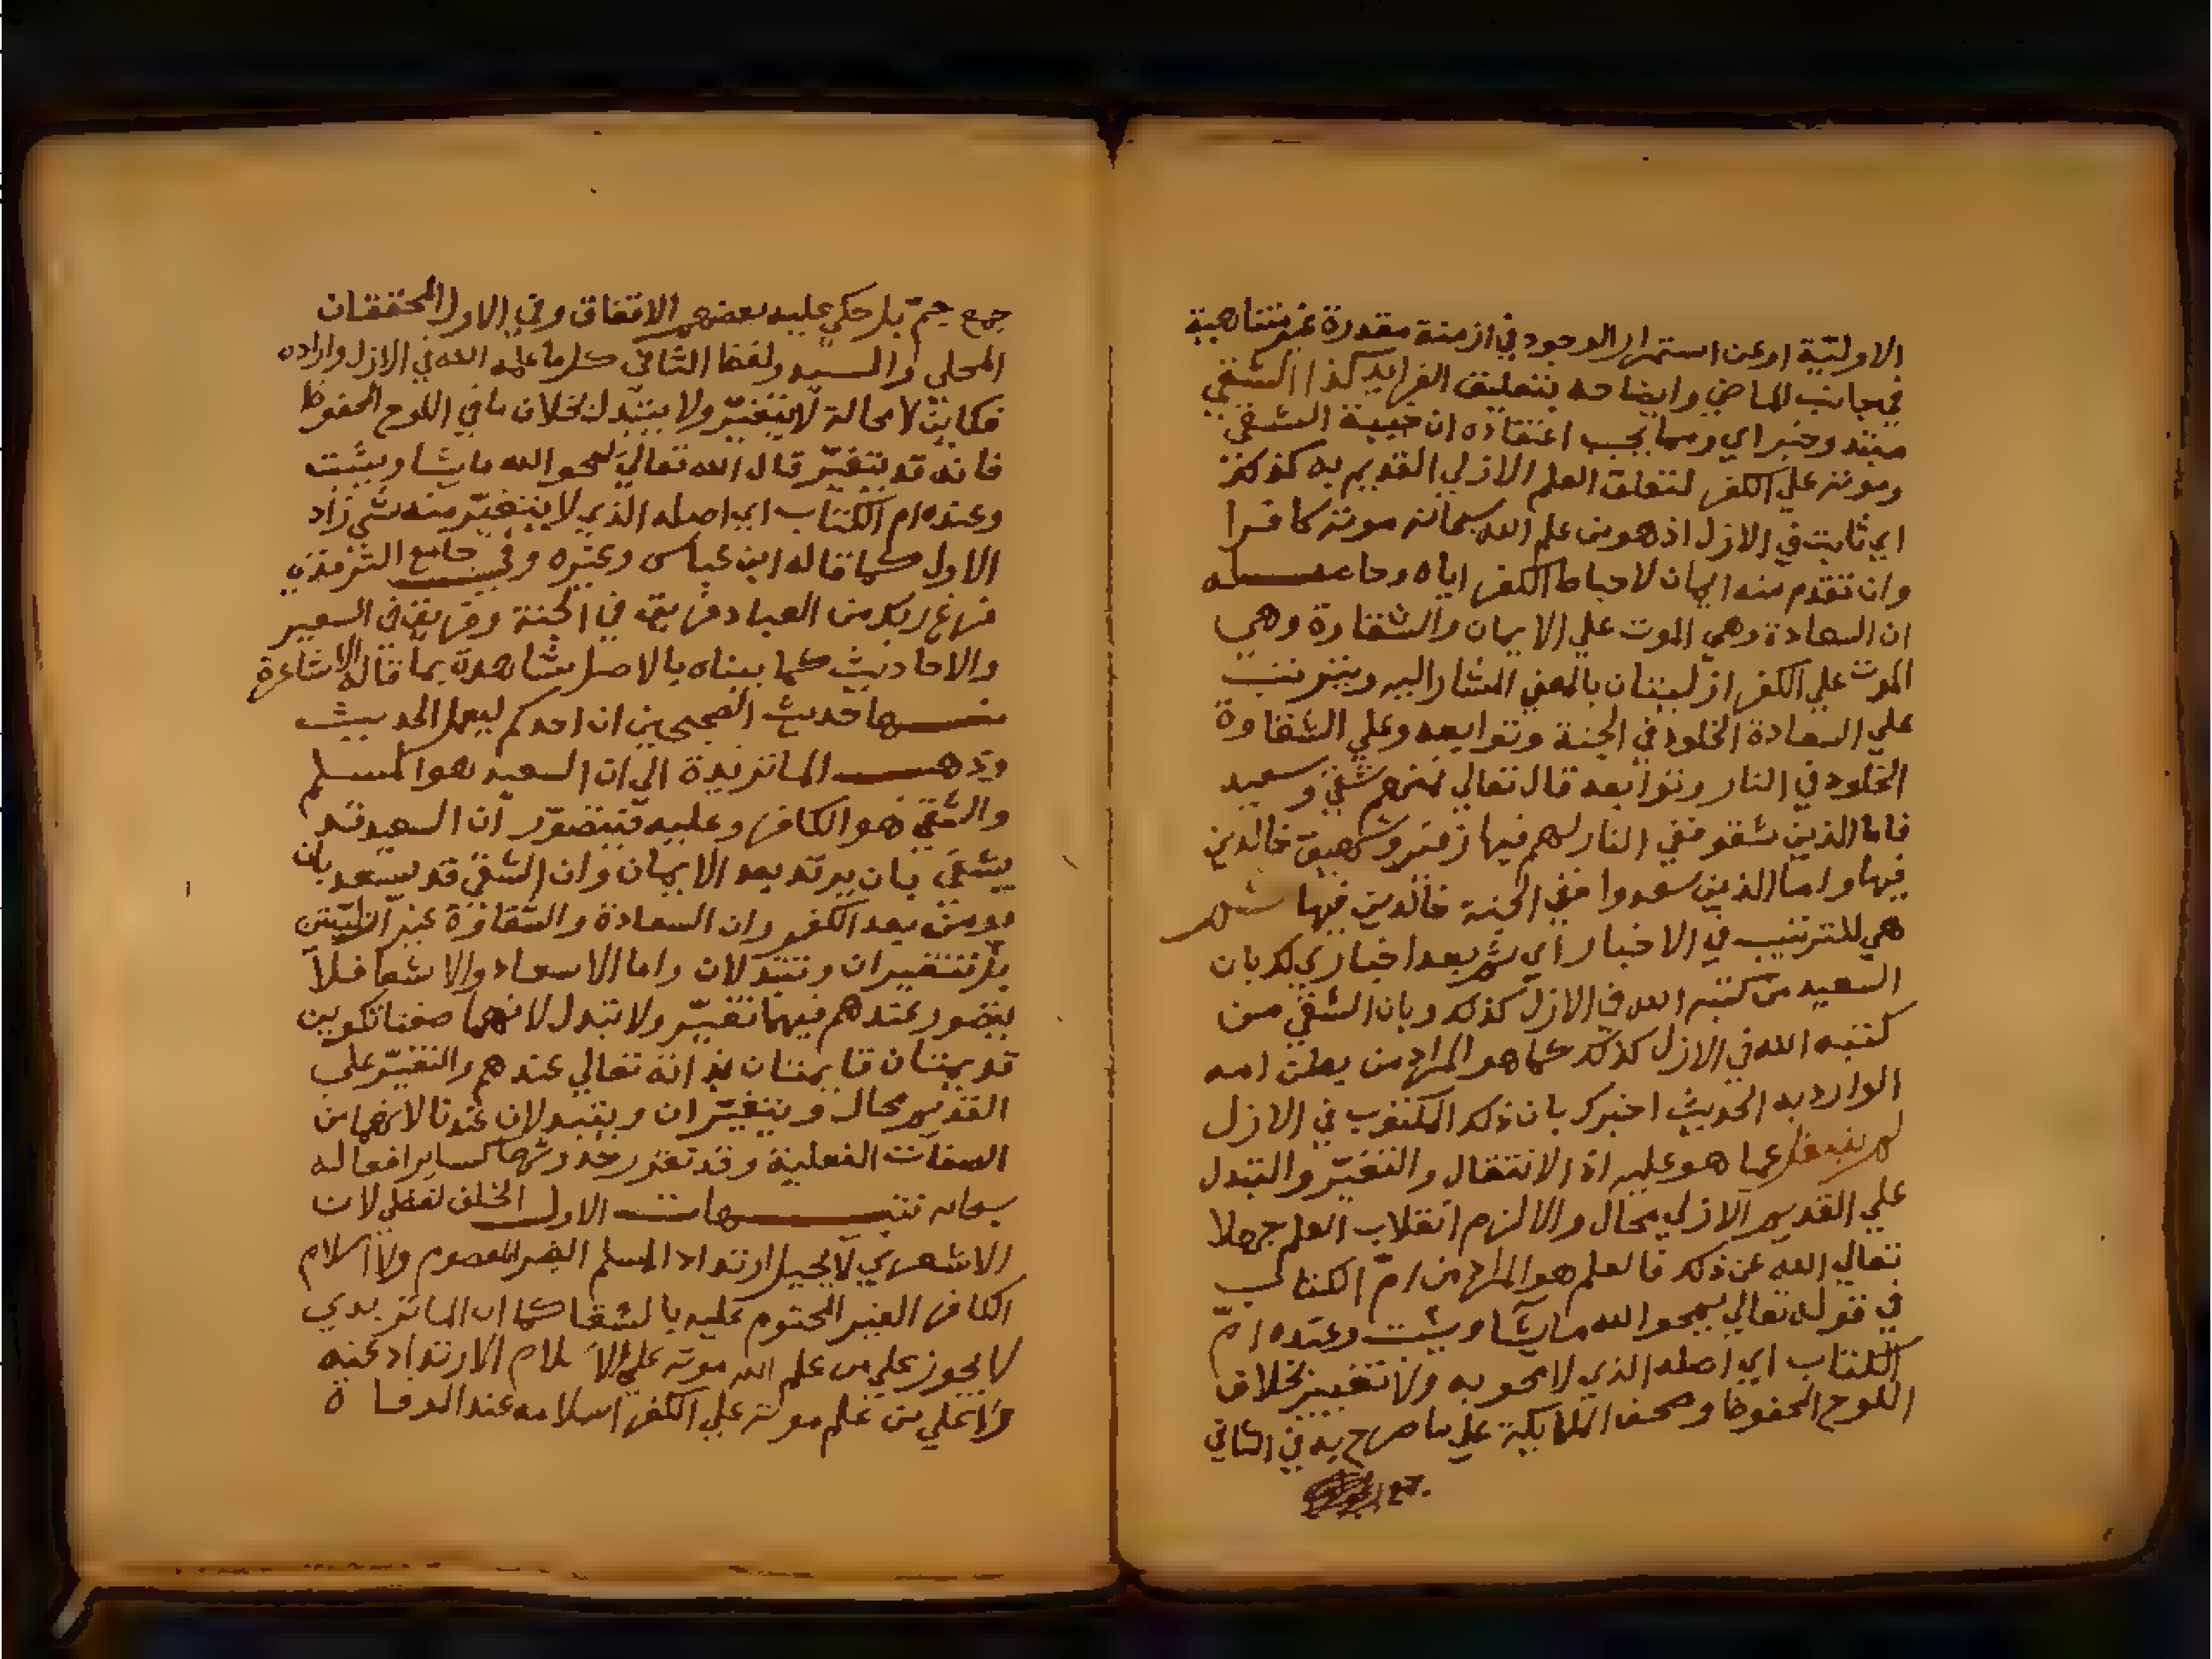 الاولية او عن استمرار الوجود في ازمنة مقدرة غير متناهية
في جانب الماضي وايضاحه بتعليق الفرايد كذا الشقي
مبتدا وخبر اي ومما يجب اعتقاده ان حيية الشقي
وموته علي الكفر لتعلق العلم الازلي القديم به كذلك
اي ثابت في الازل اذ هو من علم الله سبحانه موته كافرا
وان تقدم منه ايمان لاحباط الكفر اياه وحاصله
ان السعادة وهي الموت علي الايمان والشقاوة وهي
الموت علي الكفر ازليتان بالمعني المشار اليه ويترتب
علي السعادة الخلود في الجنة وتوابعه وعلي الشقاوة
الخلود في النار وتوابعه قال تعالي فمنهم شقي وسعيد
فاما الذين شقو ففي النار لهم فيها زفير وشهيق خالدين
فيها واما الذين سعدوا ففي الجنة خالدين فيها ثم
هي للترتيب في الاخبار اي ثم بعد اخباري لك بان
السعيد من كتبه الله في الازل كذلك وبان الشقي من
كتبه الله في الازل كذلك كما هو المراد من بطن امه
الوارد به الحديث اخبرك بان ذلك المكتوب في الازل
لم ينتقل عما هو عليه اذ الانتقال والتغيّر والتبدل
علي القديم الازلي محال والا لزم انقلاب العلم جهلا
تعالي الله عن ذلك فالعلم هو المراد من امّ الكتاب
في قوله تعالي يمحوا الله ما يشا ويثبت وعنده امّ
الكتاب اي اصله الذي لا محو به ولا تغيير بخلاف
اللوح المحفوظ وصحف الملايكة علي ما صرح به في الثاني
جمع
جمع جمّ بل حكي عليه بعضهم الاتفاق وفي الاول المحققان
المحلي والسيد ولفظ الثاني كل ما علمه الله في الازل واراده
فكاين لا محالة لا يتغيّر ولا يتبدل بخلاف ما في اللوح المحفوظ
فانه قد يتغيّر قال الله تعالي يمحو الله ما يشا ويثبت
وعنده ام الكتاب اي اصله الذي لا يتغيّر منه شي زاد
الاول كما قاله ابن عباس وغيره وفي جامع الترمذي
فرغ ربك من العباد فريق في الجنة وفريق في السعير
والاحاديث كما بيناه بالاصل شاهدة بما قاله الاشاعرة
منها حديث الصحيحين ان احدكم ليعمل الحديث
وذهب الماتريدة الي ان السعيد هو المسلم
والشقي هو الكافر وعليه فيتصوّر ان السعيد قد
يشقي بان يرتد بعد الايمان وان الشقي قد يسعد بان
يومن بعد الكفر وان السعادة والشقاوة غير ازليتين
بل تتغيران وتتبدلان واما الاسعاد والاشقا فلا
يتصور عندهم فيهما تغيّر ولا تبدل لانهما صفتا تكوين
قديمتان قايمتان بذاته تعالي عندهم والتغيّر علي
القديم محال ويتغيّران ويتبدلان عندنا لانهما من
الصفات الفعلية وقد تقرر حدوثها كساير افعاله
سبحانه تنبيهات الاول الخلف لفظي لان
الاشعري لا يحيل ارتداد المسلم الغير المعصوم ولا اسلام
الكافر الغير المحتوم عليه بالشقا كما ان الماتريدي
لا يجوز علي من علم الله موته علي الاسلام الارتداد عنه
ولا علي من علم موته علي الكفر اسلامه عند الوفاة